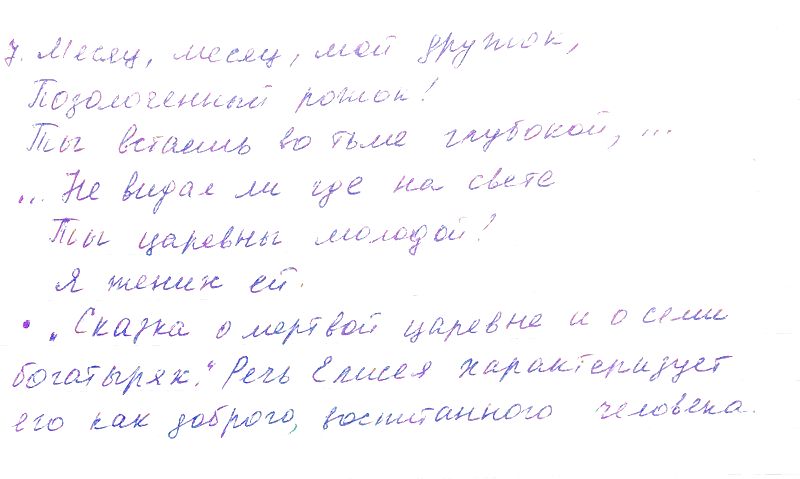 7. Месяц, месяц, мой дружок,
Позолоченный рожок!
Ты встаешь во тьме глубокой, ...
... Не видал ли где на свете
Ты царевны молодой?
Я жених ей.
• „Сказка о мертвой царевне и о семи
богатырях." Речь Елисея характеризует
его как доброго, воспитанного человека.